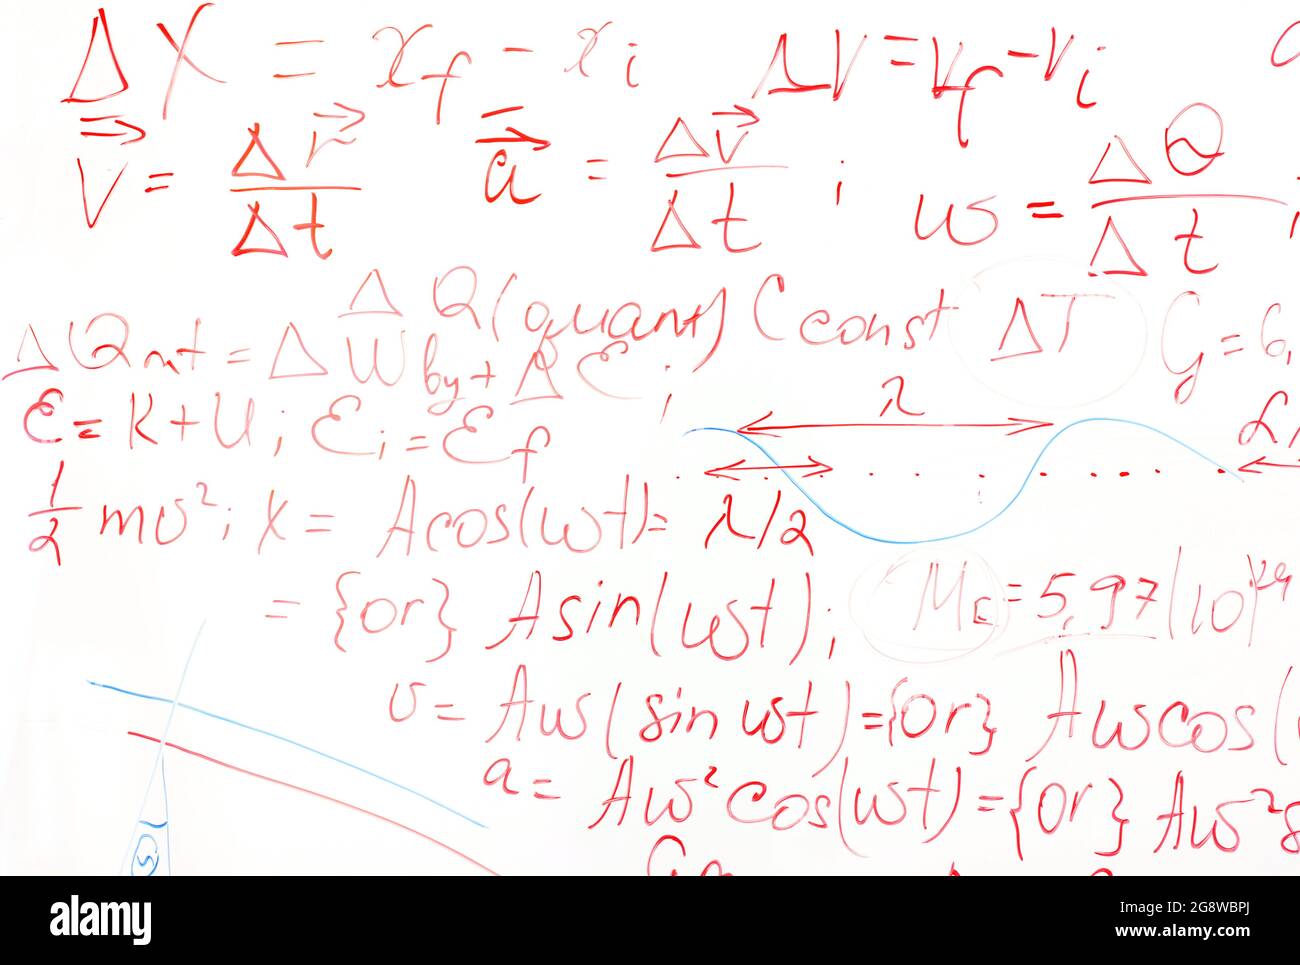 ΔX = x_f - x_i ΔV = V_f - V_i
v⃗ = Δr⃗/Δt a⃗ = Δv⃗/Δt ; ω = ΔΘ/Δt
ΔQ(quant) C const ΔT G = 6,
ΔQ = ΔW by + Δℰ ;
ℰ = K + U ; ℰi = ℰf
λ
1/2 mv² ; X = A cos(ωt) = λ/2
= {or} A sin(ωt) ; M = 5,97(10)
v = Aω(sin ωt) = {or} Aω cos(
a = Aω² cos(ωt) = {or} Aω² s
alamy
Image ID: 2G8WBPJ
www.alamy.com